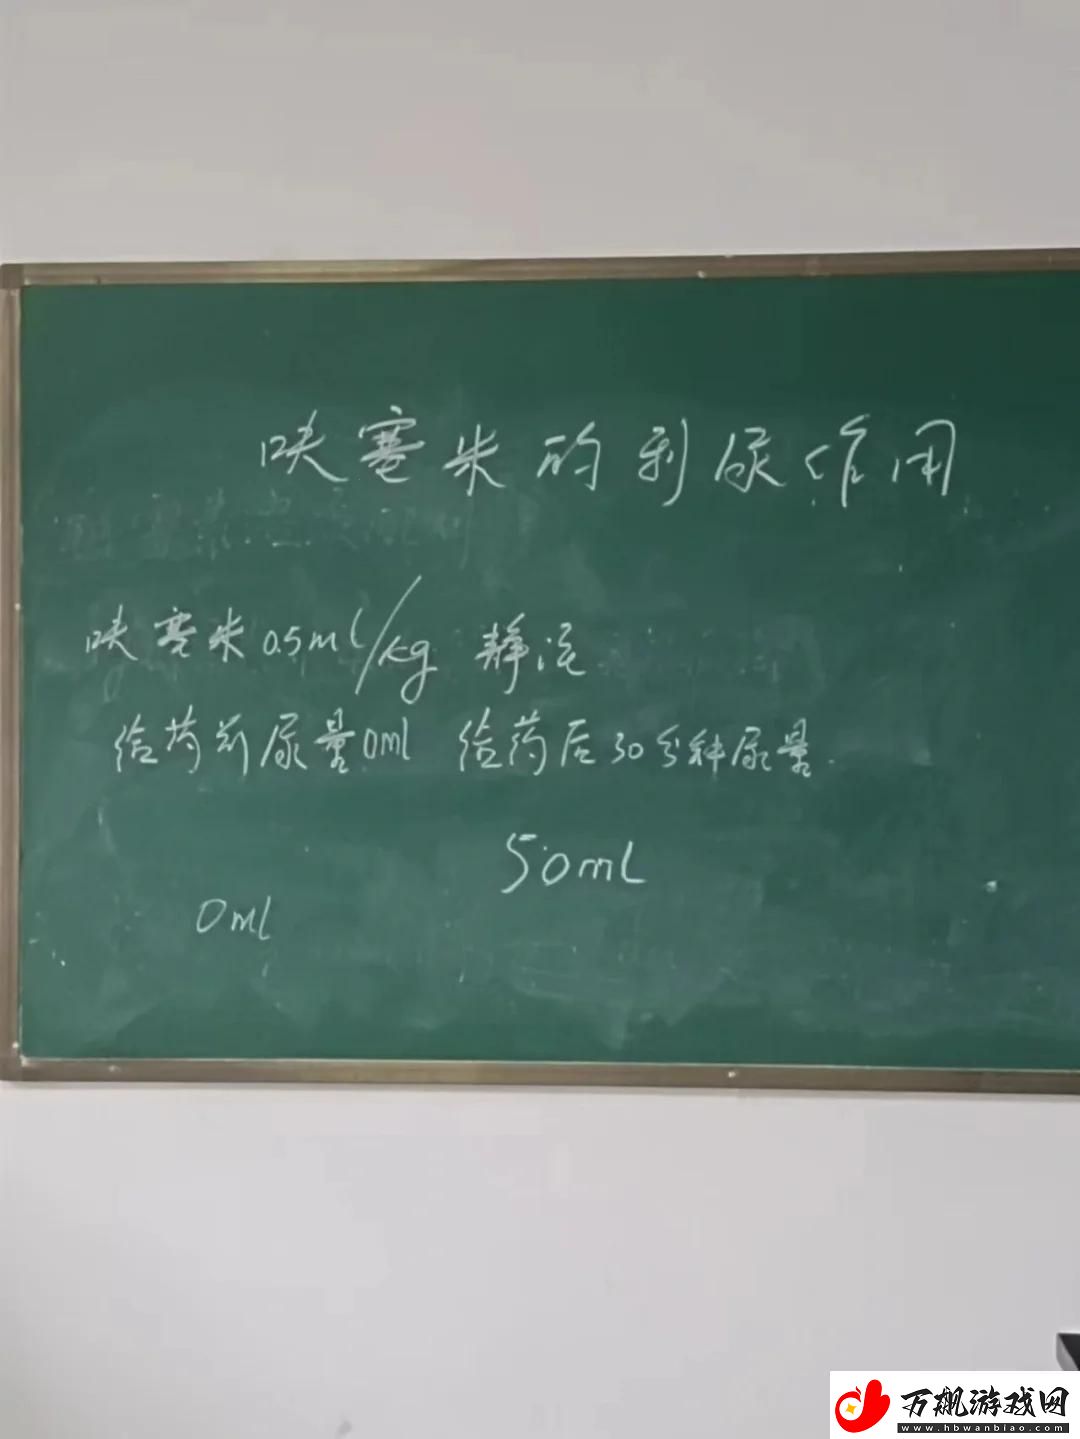 呋塞米的利尿作用
呋塞米0.5ml/kg 静注
给药前尿量0ml 给药后30分钟尿量.
50ml
0ml
万飙游戏网
www.hbwanbiao.com